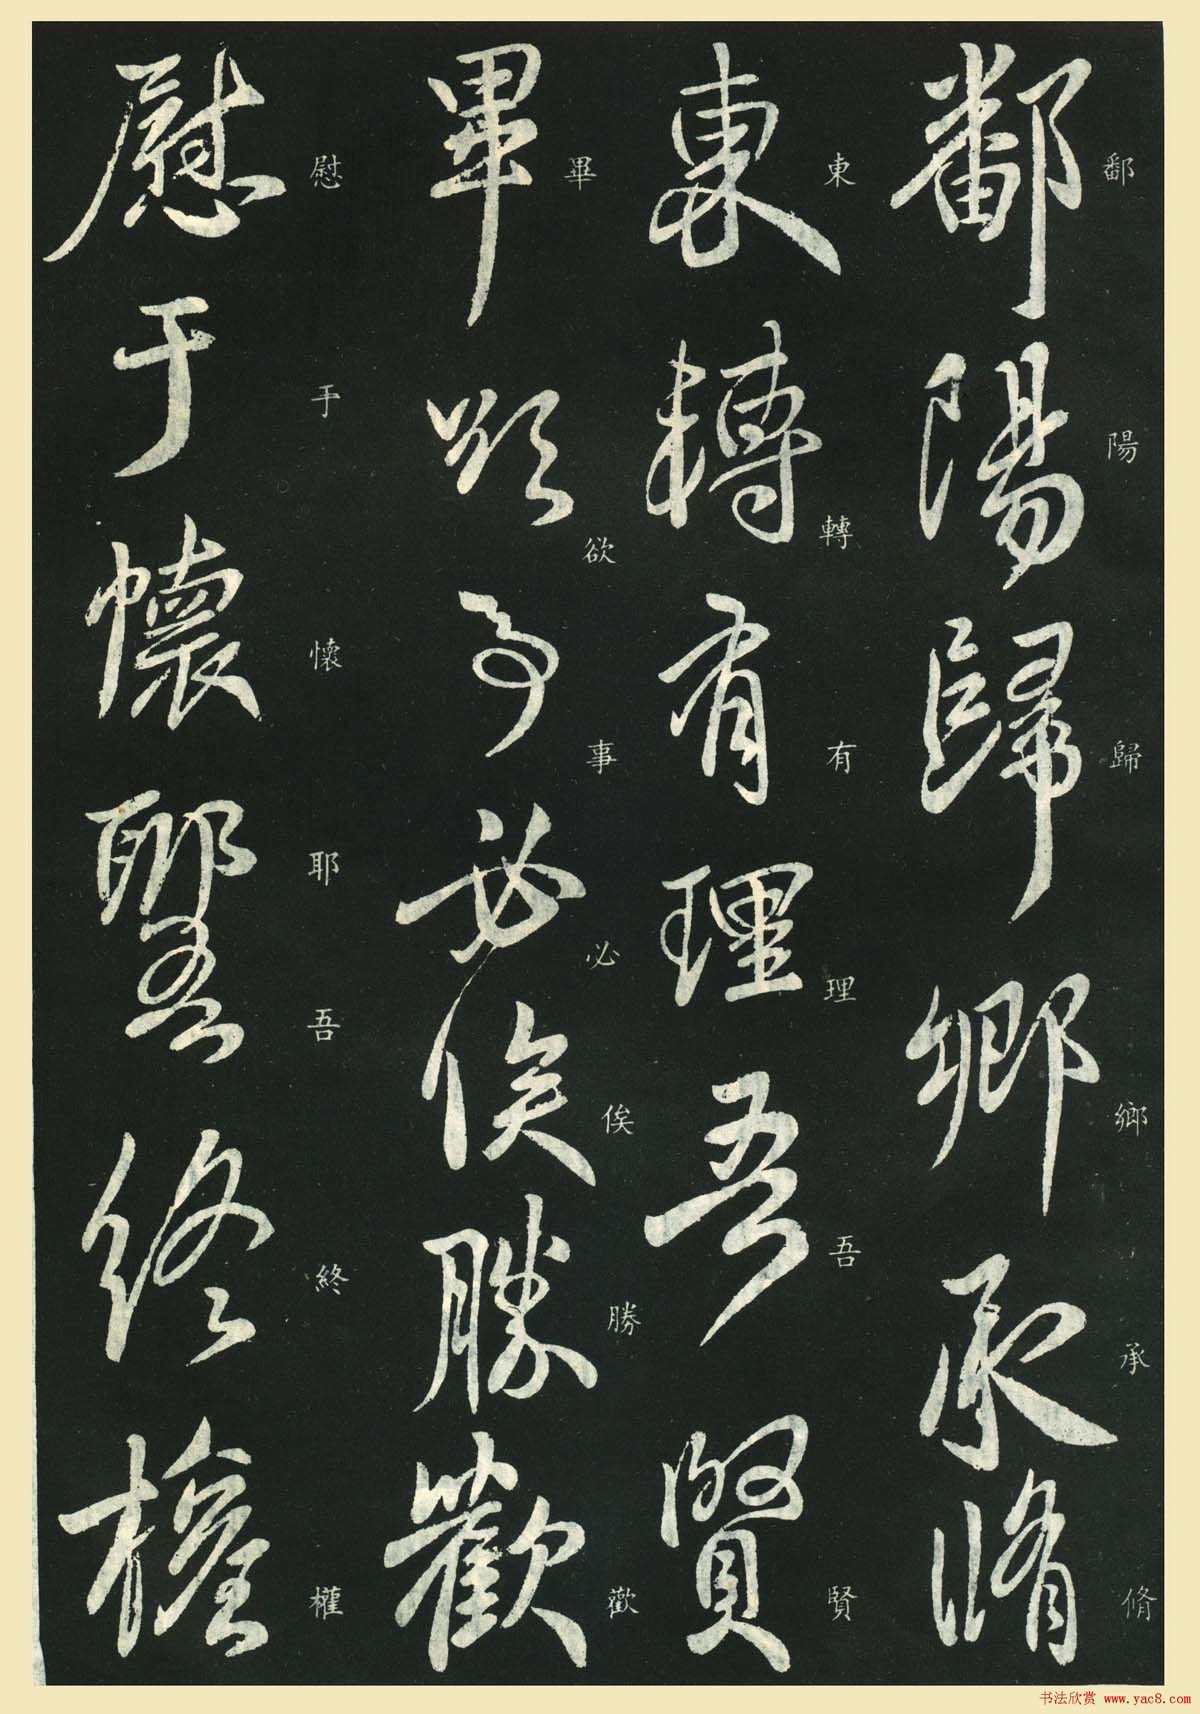 鄱陽歸鄉承脩
鄱陽歸鄉承脩
東轉有理吾賢
東轉有理吾賢
畢欲事必俟勝歡
畢欲事必俟勝歡
慰于懷耶吾終權
慰于懷耶吾終權
书法欣赏 www.yac8.com